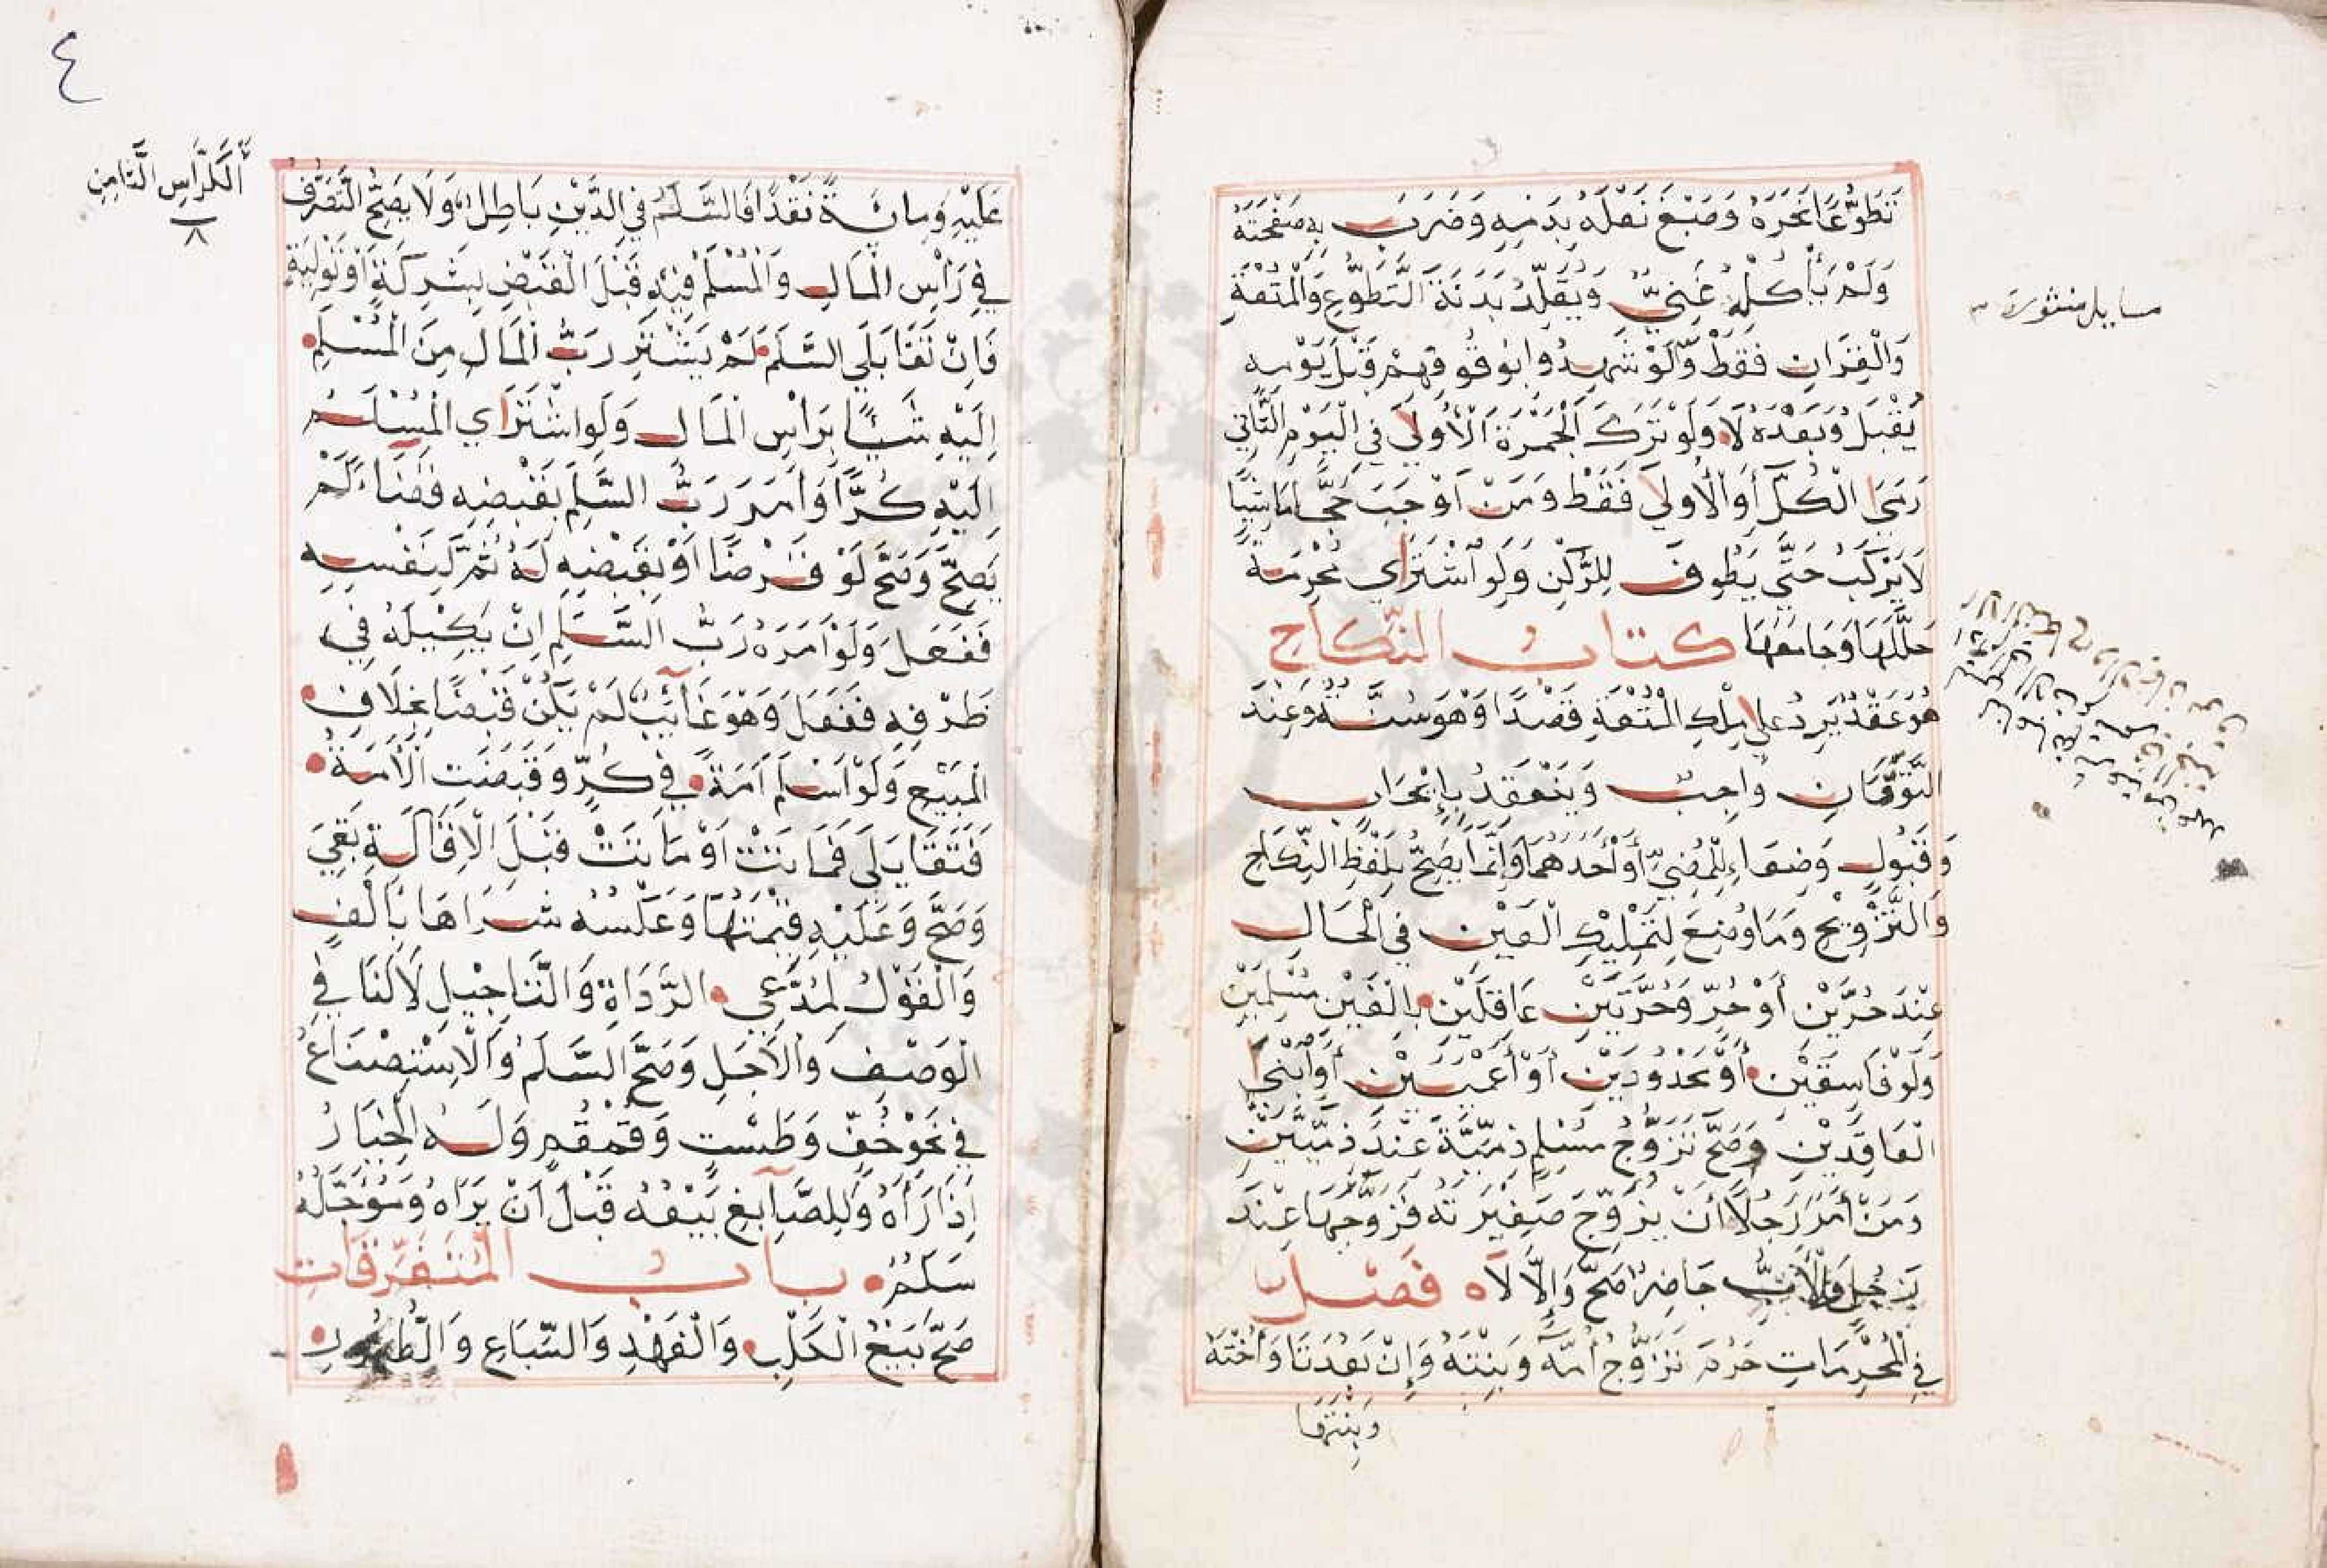 تَطَوُّعًا نَحَرَهُ وَصَبَغَ نَعْلَهُ بِدَمِهِ وَضَرَبَ بِهِ صَفْحَتَهُ
وَلَمْ يَأْكُلْهُ غَنِيٌّ وَيُقَلِّدُ بَدَنَةَ التَّطَوُّعِ وَالْمُتْعَةِ
وَالْقِرَانِ فَقَطْ وَلَوْ شَهِدُوا بِوُقُوفِهِمْ قَبْلَ يَوْمِهِ
يُقْبَلُ وَبَعْدَهُ لَا وَلَوْ تَرَكَ الْجَمْرَةَ الْأُولَى فِي الْيَوْمِ الثَّانِي
رَمَى الْكُلَّ أَوِ الْأُولَى فَقَطْ وَمَنْ أَوْجَبَ حَجًّا مَاشِيًا
لَا يَرْكَبُ حَتَّى يَطُوفَ لِلرُّكْنِ وَلَوِ اشْتَرَاي مُحْرِمَةً
حَلَّلَهَا وَجَامَعَهَا كتاب النكاح
هُوَ عَقْدٌ يَرِدُ عَلَى مِلْكِ الْمُتْعَةِ قَصْدًا وَهُوَ سُنَّةٌ وَعِنْدَ
التَّوَقَانِ وَاجِبٌ وَيَنْعَقِدُ بِإِيْجَابٍ
وَقَبُولٍ وُضِعَا لِلْمُضِيِّ أَوْ أَحَدُهُمَا وَإِنَّمَا يَصِحُّ بِلَفْظِ النِّكَاحِ
وَالتَّزْوِيْجِ وَمَا وُضِعَ لِتَمْلِيْكِ الْعَيْنِ فِي الْحَالِ
عِنْدَ حُرَّيْنِ أَوْ حُرٍّ وَحُرَّتَيْنِ عَاقِلَيْنِ بَالِغَيْنِ مُسْلِمَيْنِ
وَلَوْ فَاسِقَيْنِ أَوْ مَحْدُودَيْنِ أَوْ أَعْمَيَيْنِ أَوِ ابْنَيِ
الْعَاقِدَيْنِ وَصَحَّ تَزَوُّجُ مُسْلِمٍ ذِمِّيَّةً عِنْدَ ذِمِّيَّيْنِ
وَمَنْ أَمَرَ رَجُلًا أَنْ يُزَوِّجَ صَغِيْرَتَهُ فَزَوَّجَهَا عِنْدَ
رَجُلٍ وَالْأَبُ حَاضِرٌ صَحَّ وَإِلَّا لَا فصل
فِي الْمُحَرَّمَاتِ حَرُمَ تَزَوُّجُ أُمِّهِ وَبِنْتِهِ وَإِنْ بَعُدَتَا وَأُخْتِهِ
وَبِنْتِهَا
مسايل منثورة
٤
الْكُرَّاسِ الثَّامِنِ
٨
عَلَيْهِ وَمِائَةً نَقْدًا فَالسَّلَمُ فِي الدَّيْنِ بَاطِلٌ وَلَا يَصِحُّ التَّصَرُّفُ
فِي رَأْسِ الْمَالِ وَالْمُسْلَمِ فِيْهِ قَبْلَ الْقَبْضِ بِشَرِكَةٍ أَوْ تَوْلِيَةٍ
فَاِنْ تَقَايَلَي السَّلَمَ لَمْ يَشْتَرِ رَبُّ الْمَالِ مِنَ الْمُسْلَمِ
اِلَيْهِ شَيْئًا بِرَأْسِ الْمَالِ وَلَوِ اشْتَرَاي الْمُسْلَمُ
اِلَيْهِ كُرًّا وَاَمَرَ رَبَّ السَّلَمِ بِقَبْضِهِ قَضَاءً لَمْ
يَصِحَّ وَصَحَّ لَوْ قَرْضًا اَوْ بِقَبْضِهِ لَهُ ثُمَّ لِنَفْسِهِ
فَفَعَلَ وَلَوْ اَمَرَهُ رَبُّ السَّلَمِ اِنْ يَكِيْلَهُ فِي
ظَرْفِهِ فَفَعَلَ وَهُوَ غَآئِبٌ لَمْ يَكُنْ قَبْضًا بِخِلَافِ
الْمَبِيْعِ وَلَوْ اَسْلَمَ اَمَةً فِي كُرٍّ وَقُبِضَتِ الْاَمَةُ
فَتَقَايَلَى فَمَاتَتْ اَوْ مَاتَتْ قَبْلَ الْاِقَالَةِ بَقِيَ
وَصَحَّ وَعَلَيْهِ قِيْمَتُهَا وَعَكْسُهُ شَرَاهَا بِاَلْفٍ
وَالْقَوْلُ لِمُدَّعِي الرَّدَاةِ وَالتَّاجِيْلِ لَا لِنَافِي
الْوَصْفِ وَالْاَجَلِ وَصَحَّ السَّلَمُ وَالْاِسْتِصْنَاعُ
فِي نَحْوِ خُفٍّ وَطَسْتٍ وَقُمْقُمٍ وَلَهُ الْخِيَارُ
اِذَا رَآهُ وَلِلصَّآنِعِ بَيْعُهُ قَبْلَ اَنْ يَرَاهُ وَمُؤَجَّلُهُ
سَلَمٌ باب المتفرقات
صَحَّ بَيْعُ الْكَلْبِ وَالْفَهْدِ وَالسِّبَاعِ وَالطُّيُورِ